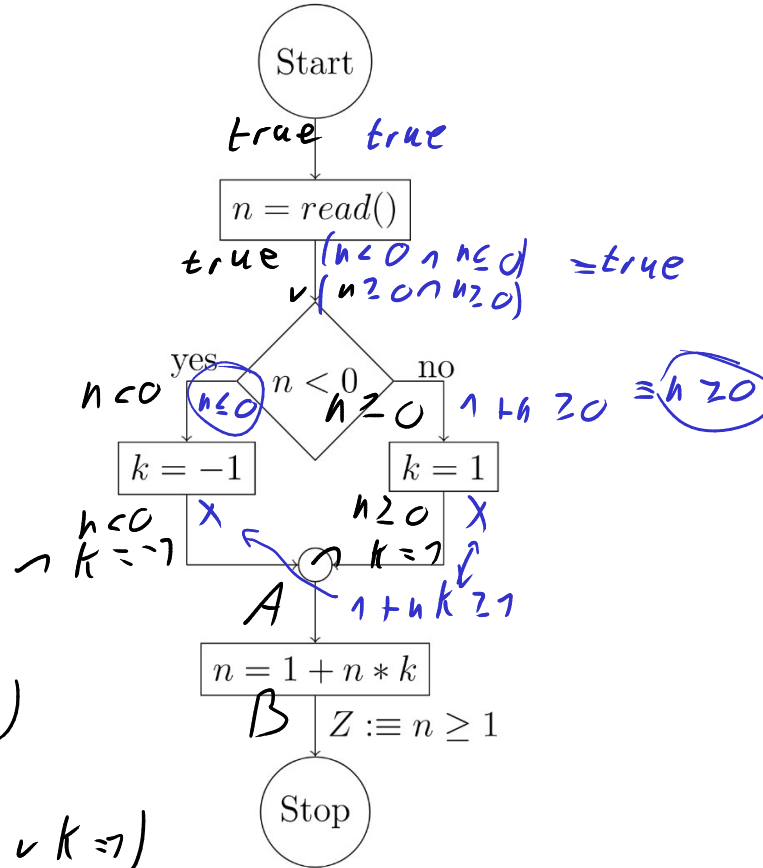 Start
true true
n = read()
true (n<0 ∧ n≤0) ≡true
∨(n≥0∧n≥0)
yes n < 0 no
n<0 n≤0 n≥0 1+n ≥0 ≡n≥0
k = −1 k = 1
n<0 X n≥0 X
∧ k=-1 ∧ k=1
A 1+nk≥1
n = 1 + n ∗ k
)
B Z :≡ n ≥ 1
Stop
∨ k=1)